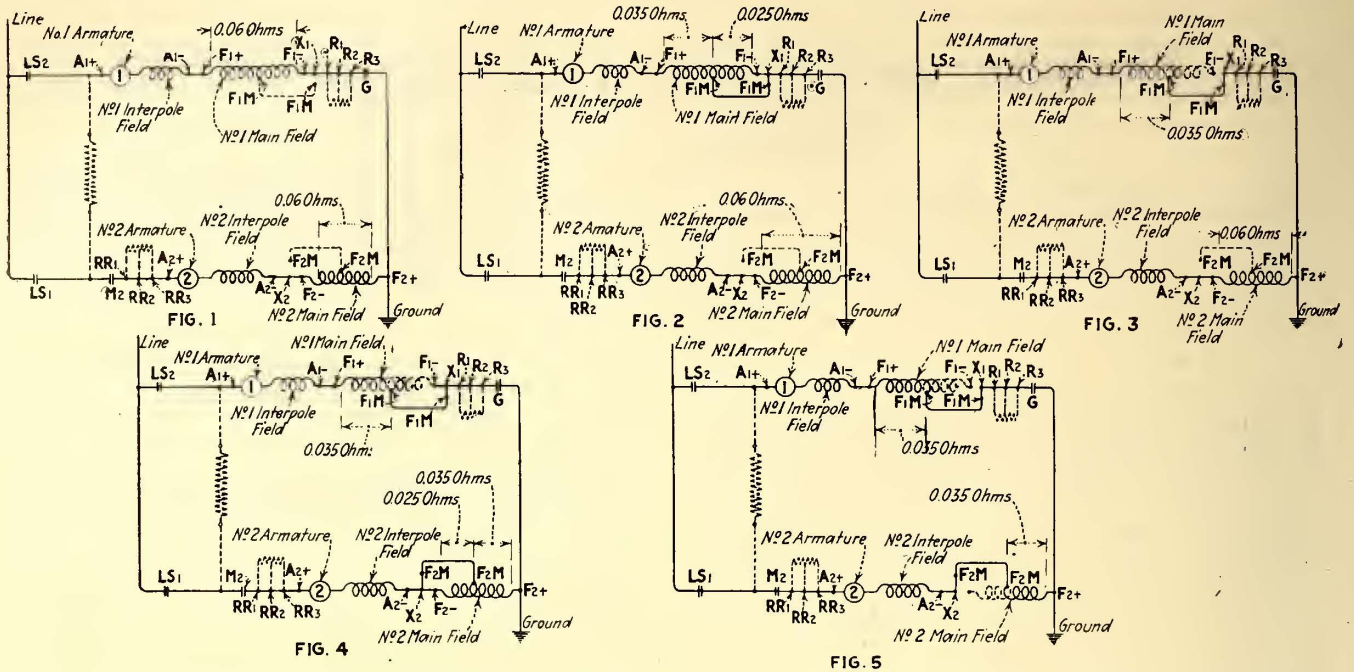 Line
LS2
No.1 Armature
A1+
1
A1-
F1+
0.06 Ohms
F1-
X1
R1
R2
R3
G
F1M
F1M
No 1 Interpole
Field
No 1 Main Field
0.06 Ohms
No 2 Armature
No 2 Interpole
Field
A2+
2
F2M
F2M
F2+
LS1
RR1
M2
RR2
RR3
A2-
X2
F2-
No 2 Main Field
Ground
FIG. 1
Line
LS2
No 1 Armature
0.035 Ohms
0.025 Ohms
A1+
1
A1-
F1+
F1-
X1
R1
R2
R3
G
F1M
F1M
No 1 Interpole
Field
No 1 Main Field
0.06 Ohms
No 2 Amature
No 2 Interpole
Field
A2+
2
F2M
F2M
F2+
LS1
M2
RR1
RR2
RR3
A2-
X2
F2-
No 2 Main Field
Ground
FIG. 2
Line
LS2
No 1 Armature
No 1 Main
Field
A1+
1
A1-
F1+
F1-
X1
R1
R2
R3
G
F1M
F1M
No 1 Interpole
Field
0.035 Ohms
0.06 Ohms
No 2 Armature
No 2 Interpole
Field
A2+
2
F2M
F2M
F2+
LS1
M2
RR1
RR2
RR3
A2-
X2
F2-
No 2 Main
Field
Ground
FIG. 3
Line
LS2
No 1 Armature
No 1 Main Field
A1+
1
A1-
F1+
F1-
X1
R1
R2
R3
G
F1M
F1M
No 1 Interpole
Field
0.035 Ohms
0.035 Ohms
0.025 Ohms
No 2 Armature
No 2 Interpole
Field
A2+
2
F2M
F2M
F2+
LS1
M2
RR1
RR2
RR3
A2-
X2
F2-
No 2 Main Field
Ground
FIG. 4
Line
LS2
No 1 Armature
No 1 Main Field
A1+
1
A1-
F1+
F1-
X1
R1
R2
R3
G
F1M
F1M
No 1 Interpole
Field
0.035 Ohms
0.035 Ohms
No 2 Armature
No 2 Interpole
Field
A2+
2
F2M
F2M
F2+
LS1
M2
RR1
RR2
RR3
A2-
X2
F2-
No 2 Main Field
Ground
FIG. 5